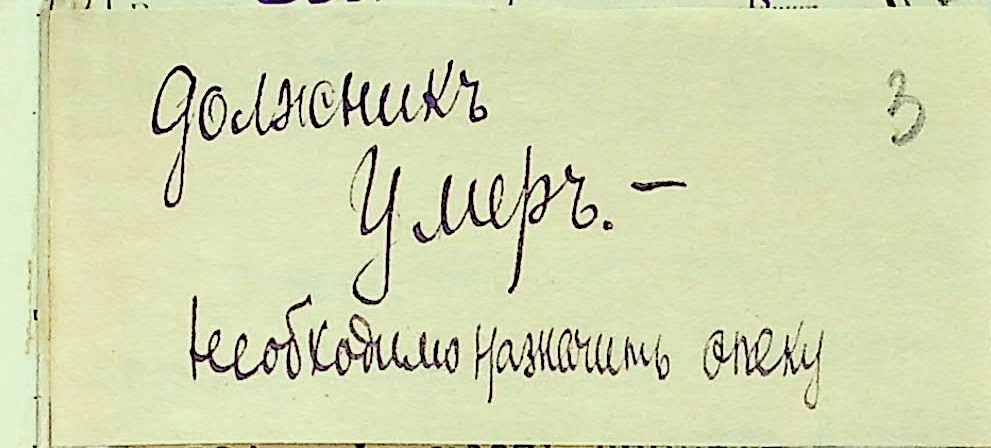 должникъ
3
Умеръ. —
Необходимо назначить опеку